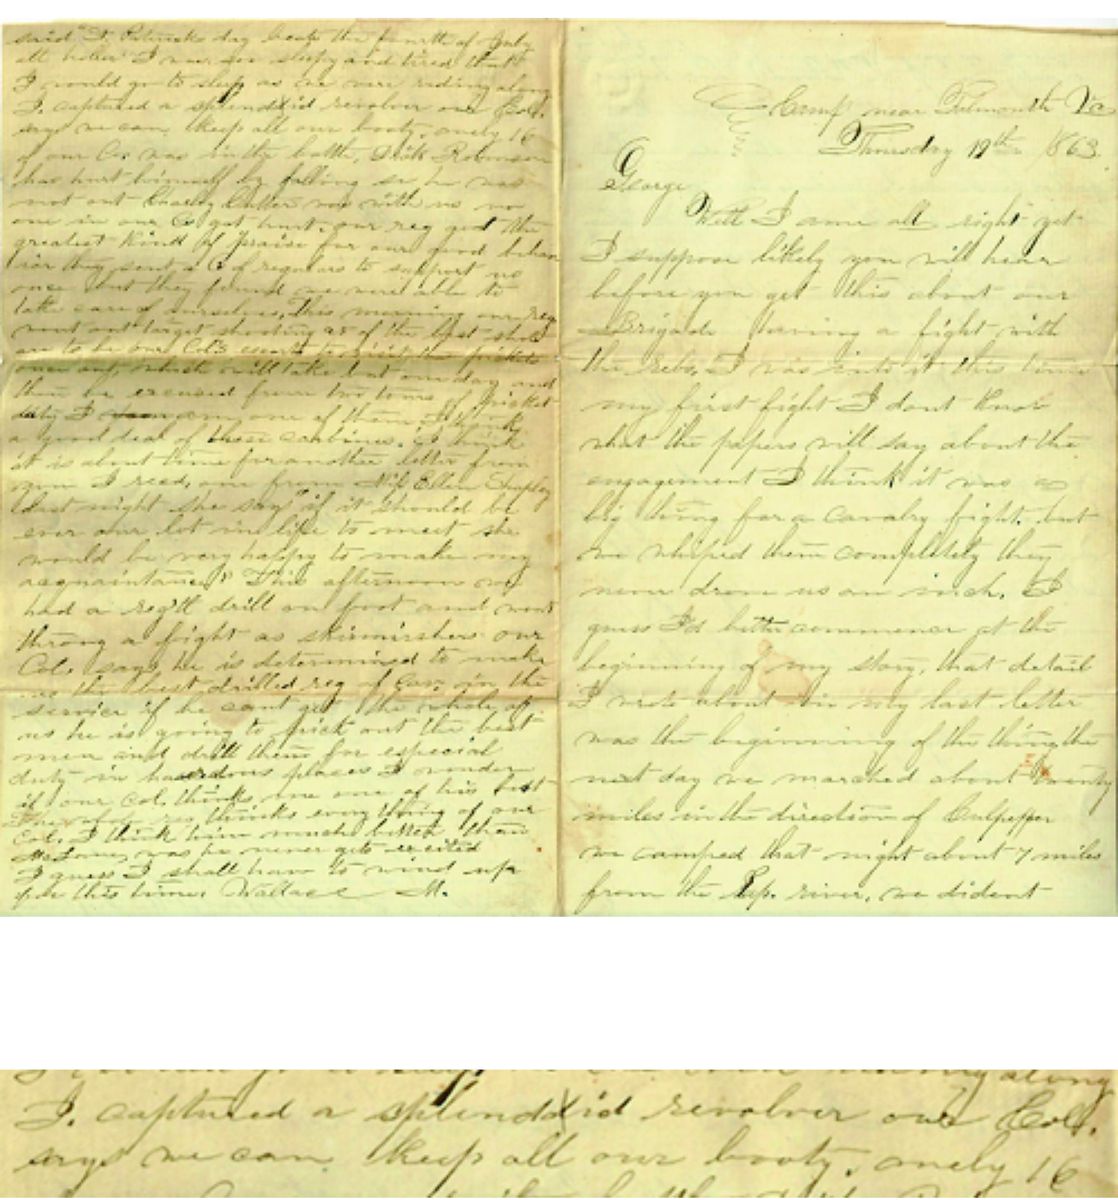 said "St. Patricks day beats the fourth of July
all holler" I was so sleepy and tired that
I would go to sleep as we were riding along
I. captured a splenddid revolver our Col.
says we can keep all our booty, onely 16
of our Co. was in the battle, Dick Robinson
has hurt himself by falling so he was
not out Charley Cutler was with us no
one in our Co got hurt, our reg got the
greatest kind of praise for our good behav
ior they sent a Co of regulars to support us
once but they found we were able to
take care of ourselves, This morning our reg
went out target shooting as of the best shots
are to be our Col's escort to visit the pickets
once out which will take but one day and
then be excused from two tours of picket
duty I am one of them I think
a good deal of these carbines. I think
it is about time for another letter from
you I recd, one from Ellen
last night she says "if it should be
ever our lot in life to meet she
would be very happy to make my
acquaintance" This afternoon we
had a reg'tl drill on foot and went
throug a fight as skirmirshers our
Col. says he is determined to make
us the best drilled reg of Cav. in the
service if he cant get the whole of
us he is going to pick out the best
men and drill them for especial
duty in hazardous places I wonder
if our Col. thinks me one of his best
The whole reg thinks every thing of our
Col. I think him much better than
was he never gets excited
I guess I shall have to wind up
for this time. Wallace M.
Camp near Falmouth Va
Thursday 19th 1863
George
Well I ame all right yet
I suppose likely you will hear
before you get this about our
Brigade having a fight with
the rebs, I was into it this time
my first fight I dont know
what the papers will say about the
engagement I think it was a
big thing for a cavalry fight. but
we whiped them completely they
never drove us an inch. I
guess I'd better commence at the
beginning of my story, that detail
I wrote about in my last letter
was the beginning of the thing the
next day we marched about twenty
miles in the direction of Culpepper
we camped that night about 7 miles
from the Rap. river, we dident
along
I. captured a splenddid revolver our Col.
says we can keep all our booty, onely 16